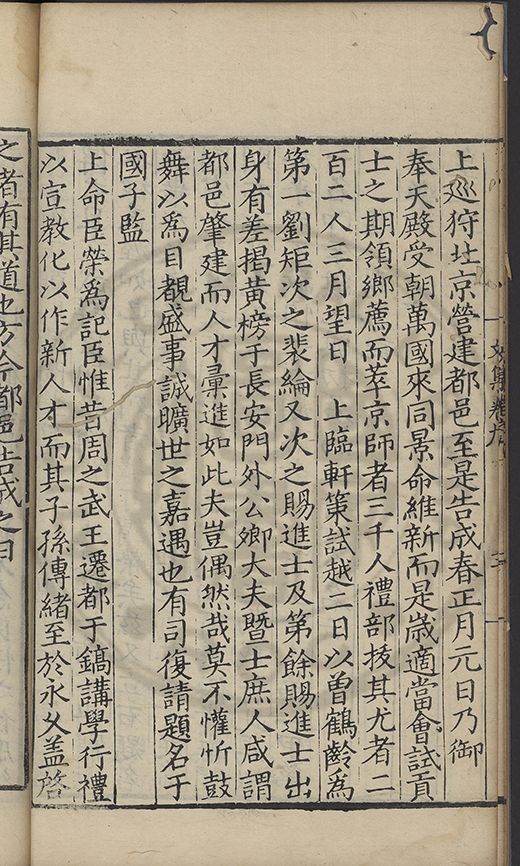 上廵狩北京營建都邑至是告成春正月元日乃御
奉天殿受朝萬國來同景命維新而是歲適當會試貢
士之期領鄉薦而萃京師者三千人禮部拔其尤者二
百二人三月望日 上臨軒策試越二日以曾鶴齡爲
第一劉矩次之裴綸又次之賜進士及第餘賜進士出
身有差揭黄榜于長安門外公卿大夫暨士庶人咸謂
都邑肇建而人才彙進如此夫豈偶然哉莫不懽忻鼓
舞以爲目覩盛事誠曠世之嘉遇也有司復請題名于
國子監
上命臣榮爲記臣惟昔周之武王遷都于鎬講學行禮
以宣教化以作新人才而其子孫傳緒至於永久盖啓
之者有其道也方今都邑告成之日
文集卷九